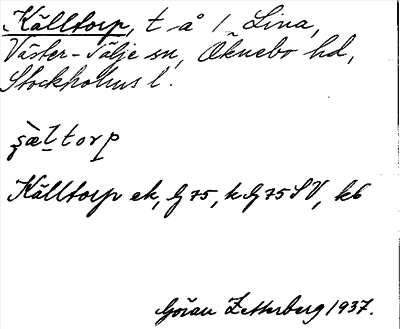 Källtorp, t å / Lina,
Väster-Tälje sn, Öknebo hd,
Stockholms l.
ʂæ̀ltorp
Källtorp ek, G 75, k G 75 SV, k6
Göran Zetterberg 1937.